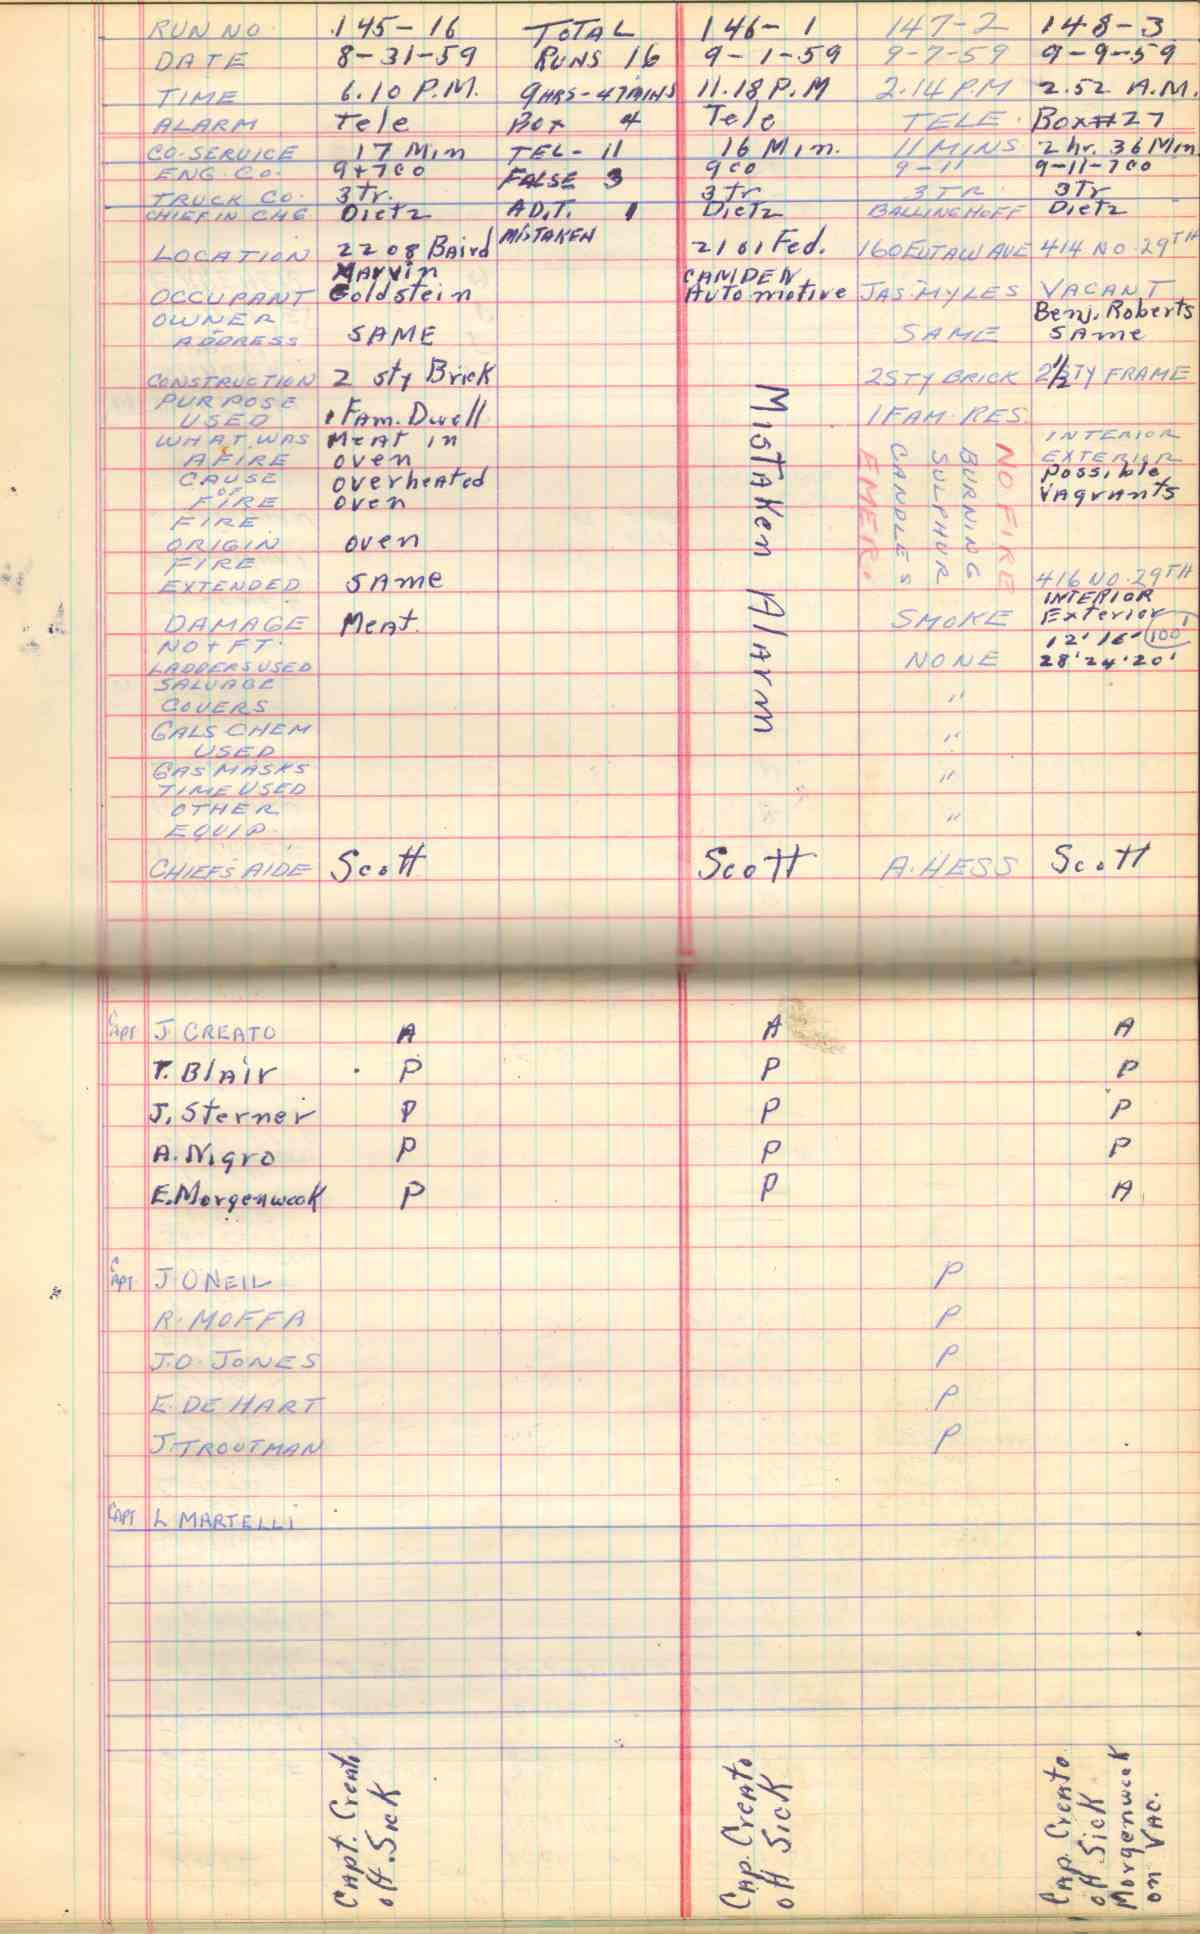 RUN NO. 145-16 TOTAL 146-1 147-2 148-3
DATE 8-31-59 RUNS 16 9-1-59 9-7-59 9-9-59
TIME 6.10 P.M. 9 HRS-47 MINS 11.18 P.M 2.14 P.M 2.52 A.M.
ALARM Tele Box 4 Tele TELE. Box#27
CO-SERVICE 17 Min TEL- 11 16 Min. 11 MINS 2 hr. 36 Min
ENG. CO. 9+7co FALSE 3 9co 9-11 9-11-7co
TRUCK CO. 3 Tr. 3 Tr 3 TR. 3 Tr
CHIEF IN CHG Dietz A.D.T. 1 Dietz BALLINGHOFF Dietz
MISTAKEN
LOCATION 2208 Baird 2101 Fed. 160 EUTAW AVE 414 NO. 29TH
Marvin CAMDEN
OCCUPANT Goldstein Automotive JAS. MYLES VACANT
OWNER Benj. Roberts
ADDRESS SAME SAME SAme
CONSTRUCTION 2 sty Brick 2 STY BRICK 2½ STY FRAME
PURPOSE
USED 1 Fam. Dwell 1 FAM. RES.
WHAT WAS Meat in INTERIOR
AFIRE oven EXTERIOR
CAUSE overheated possible
OF
FIRE oven Vagrants
FIRE
ORIGIN oven
FIRE
EXTENDED SAme 416 NO. 29TH
INTERIOR
DAMAGE Meat. SMOKE Exterior
NO + FT. 12' 16' 100'
LADDERS USED NONE 28' 24' 20'
SALVAGE
COVERS "
GALS CHEM
USED "
GAS MASKS
TIME USED "
OTHER
EQUIP. "
Mistaken Alarm
NO FIRE
BURNING
SULPHUR
CANDLES
EMER.
CHIEFS AIDE Scott Scott A. HESS Scott
CAPT J. CREATO A A A
T. Blair P P P
J. Sterner P P P
A. Nigro P P P
E. Morgenweck P P A
CAPT. J ONEIL P
R. MOFFA P
J.O. JONES P
E. DE HART P
J. TROUTMAN P
CAPT L MARTELLI
Capt. Creato
off Sick
Cap. Creato
off Sick
Cap. Creato
off Sick
Morgenweck
on Vac.